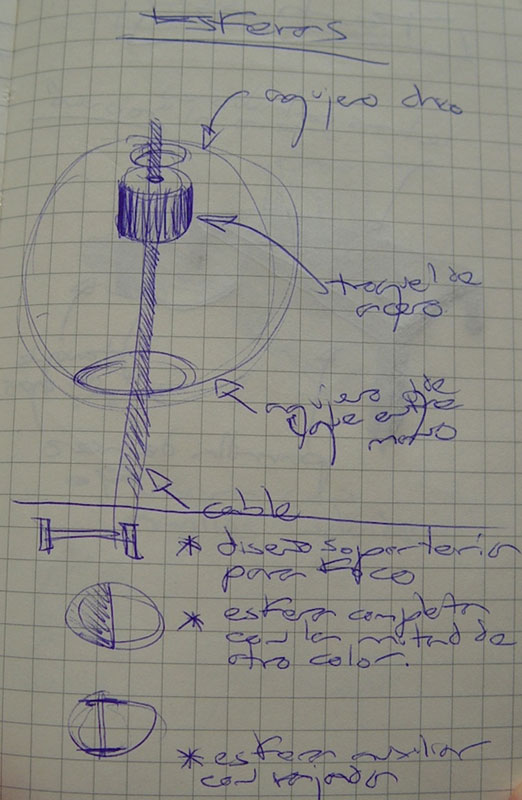 Esferas
agujero chco
stroquel de
mopo
agujero de
que entre
mano
cable
* diseño soporterior
para foco
* esfera completa
con la mitad de
otro color.
* esfera auxiliar
con rajador